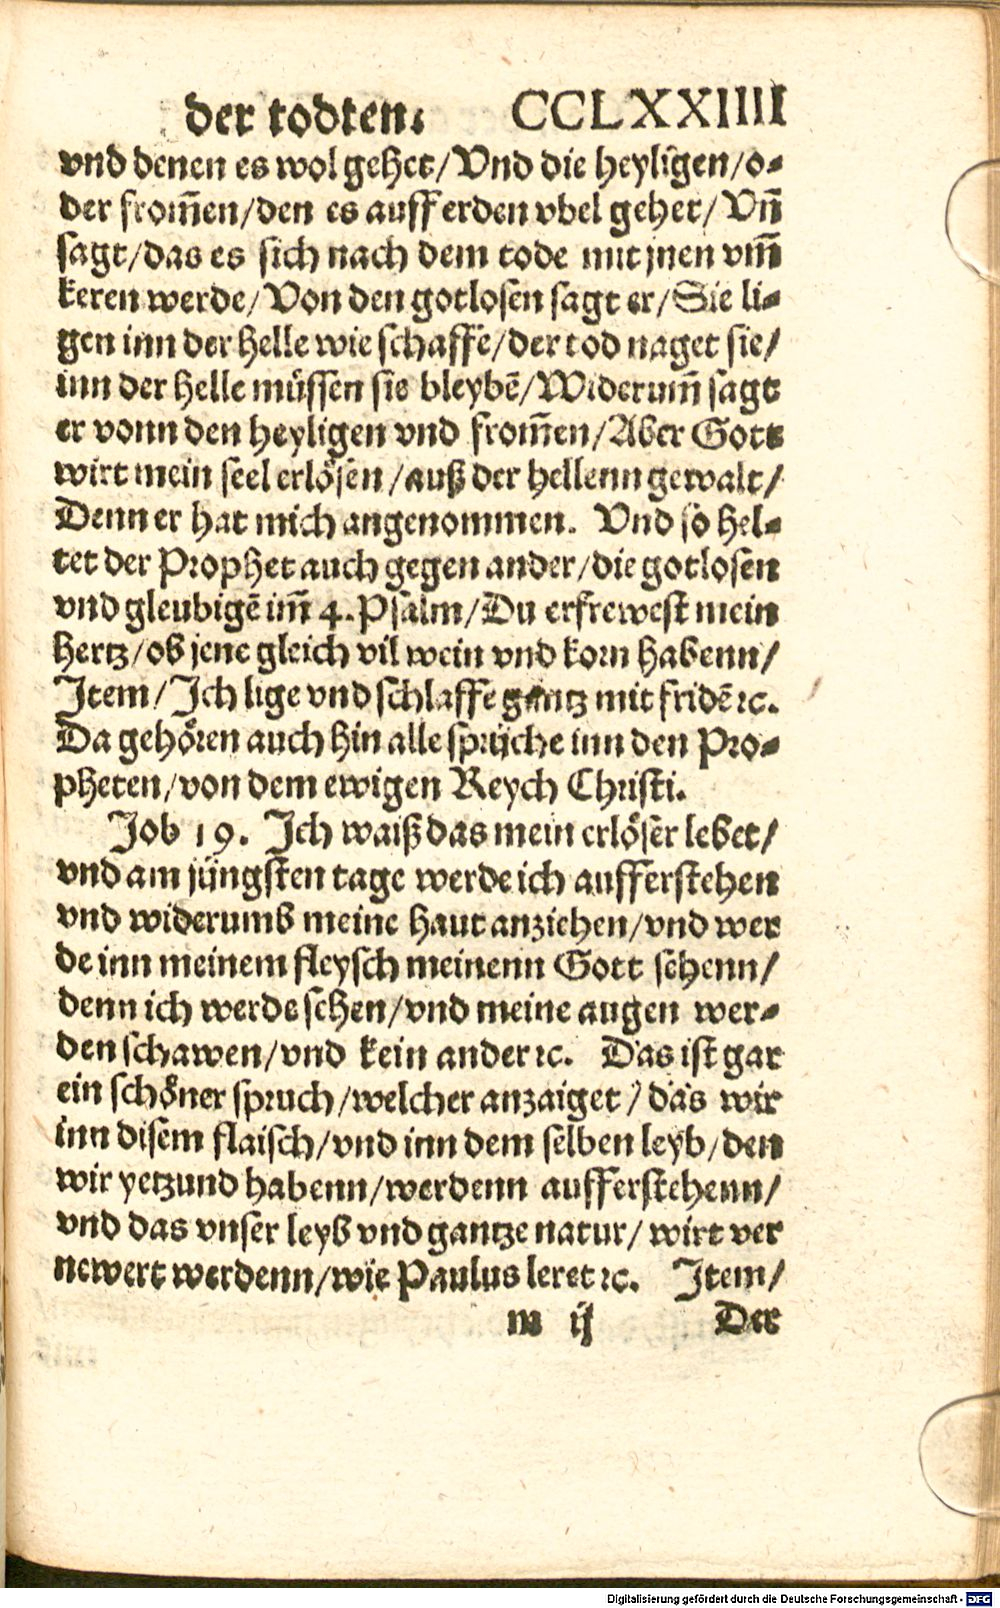 der todten. CCLXXIIII
vnd denen es wol gehet/Vnd die heyligen/o-
der from̃en/den es auff erden vbel gehet/Vñ
sagt/das es sich nach dem tode mit jnen vm̃
keren werde/Von den gotlosen sagt er/Sie li-
gen inn der helle wie schaffe/der tod naget sie/
inn der helle müssen sie bleybẽ/Widerum̃ sagt
er vonn den heyligen vnd from̃en/Aber Gott
wirt mein seel erlösen/auß der hellenn gewalt/
Denn er hat mich angenommen. Vnd so hel-
tet der Prophet auch gegen ander/die gotlosen
vnd gleubigẽ im̃ 4. Psalm/Du erfrewest mein
hertz/ob jene gleich vil wein vnd korn habenn/
Item/Ich lige vnd schlaffe gantz mit fridẽ ꝛc.
Da gehören auch hin alle sprüche inn den Pro-
pheten/von dem ewigen Reych Christi.
Job 19. Ich waiß das mein erlöser lebet/
vnd am jüngsten tage werde ich aufferstehen
vnd widerumb meine haut anziehen/vnd wer
de inn meinem fleysch meinenn Gott sehenn/
denn ich werde sehen/vnd meine augen wer-
den schawen/vnd kein ander ꝛc. Das ist gar
ein schöner spruch/welcher anzaiget/das wir
inn disem flaisch/vnd inn dem selben leyb/den
wir yetzund habenn/werdenn aufferstehenn/
vnd das vnser leyb vnd gantze natur/wirt ver
newert werdenn/wie Paulus leret ꝛc. Item/
m ij Der
Digitalisierung gefördert durch die Deutsche Forschungsgemeinschaft - DFG